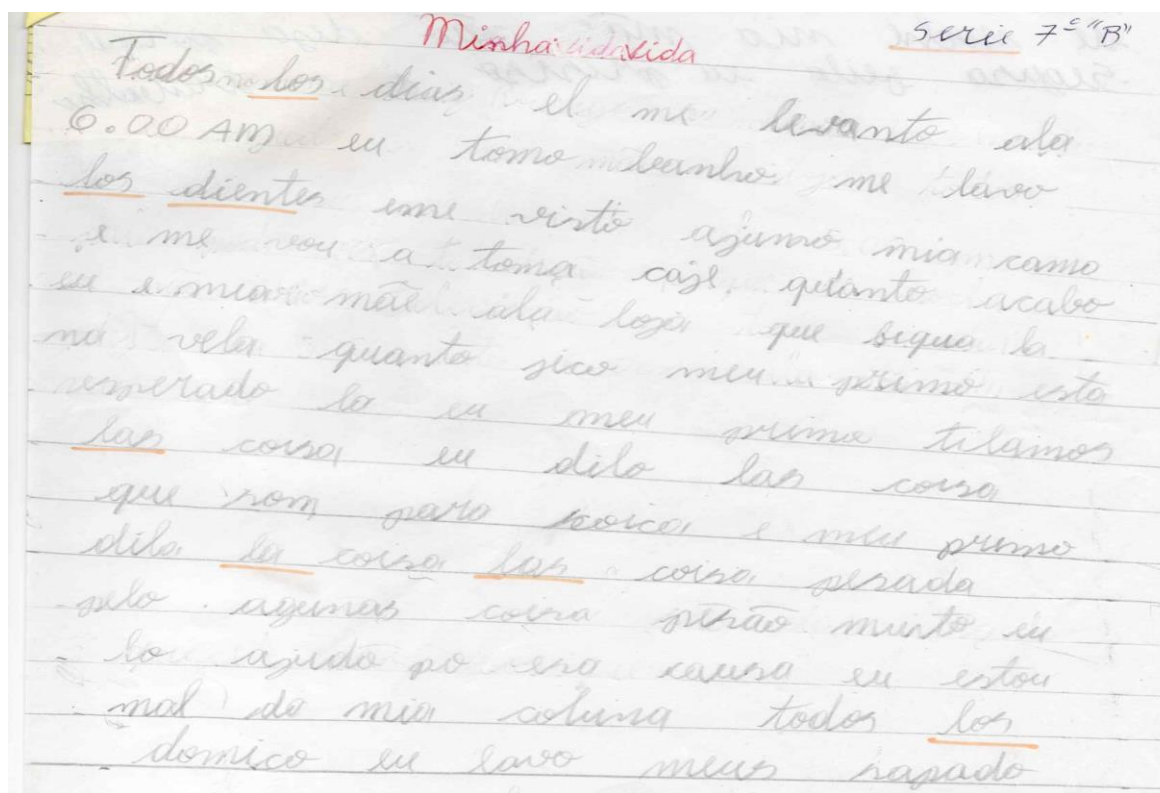 Minha vida Serie 7ª "B"
Todos los dias el me levanto ala
6.00 AM eu tomo banho me lavo
los dientes eme visto ajumo mia camo
e me vou a toma cafe, quanto acabo
eu e mia mãe ala loja que siqua la
na vela quanto sico meu primo esta
esperado la eu meu primo tilamos
las coisa eu dilo las coisa
que som para coica e meu primo
dila la coisa las coisa pesada
pelo agunas coisa pesão muito eu
lo ajudo po esa causa eu estou
mal da mia coluna todos los
domico eu lavo meus sapado